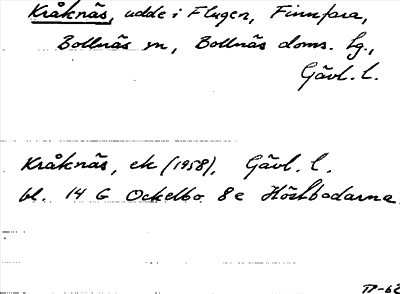 Kråknäs, udde i Flugen, Finnfara,
Bollnäs sn, Bollnäs doms. hg.,
Gävl. l.
Kråknäs, ek (1958), Gävl. l.
bl. 14 G Ockelbo 8 e Höstbodarna
TP-62